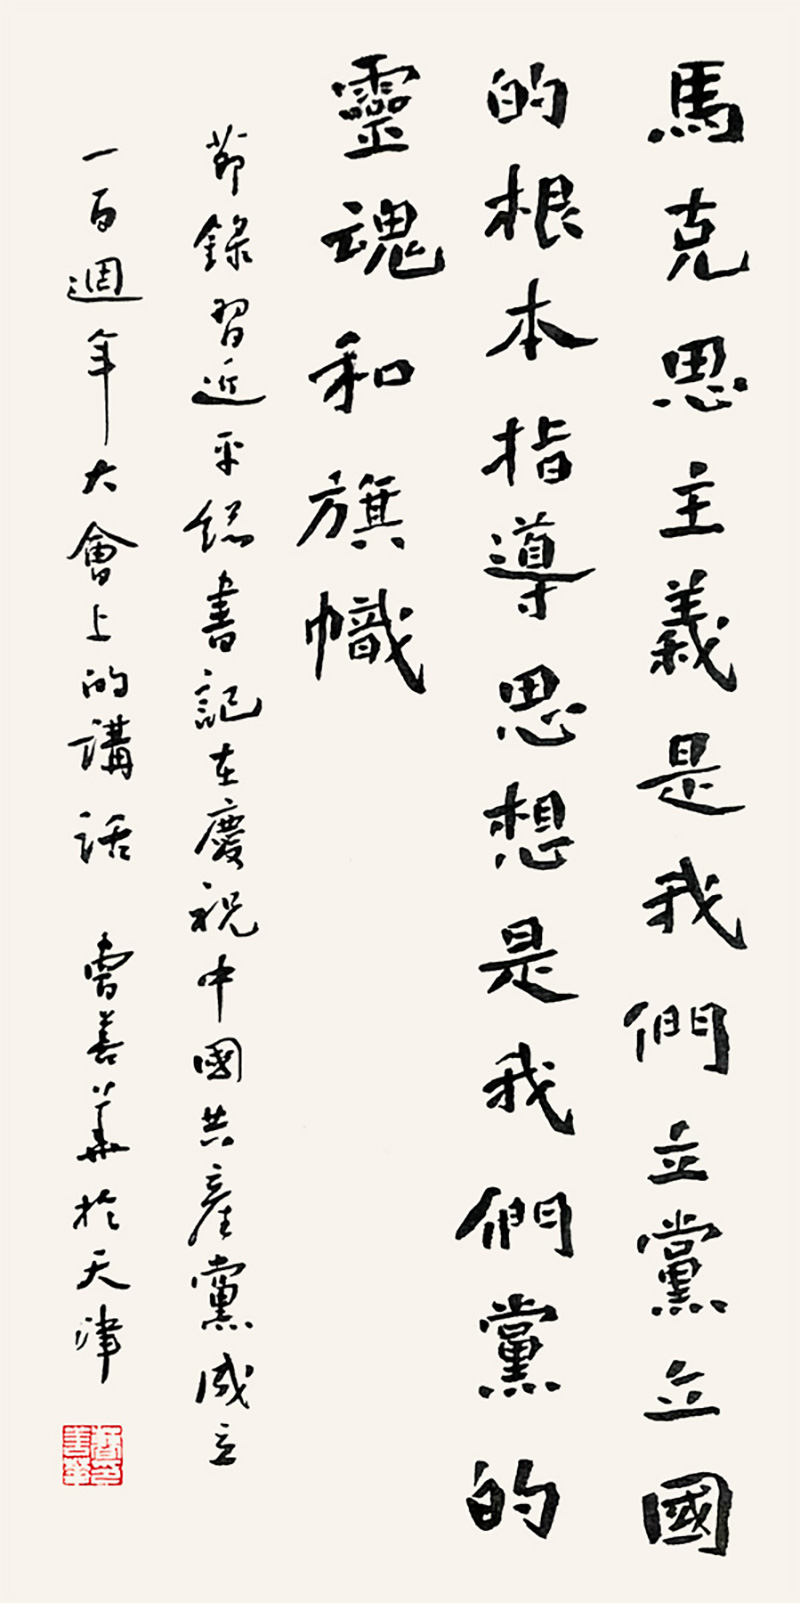 馬克思主義是我們立黨立國
的根本指導思想是我們黨的
靈魂和旗幟
節錄習近平總書記在慶祝中國共產黨成立
一百週年大會上的講話 曹善華於天津